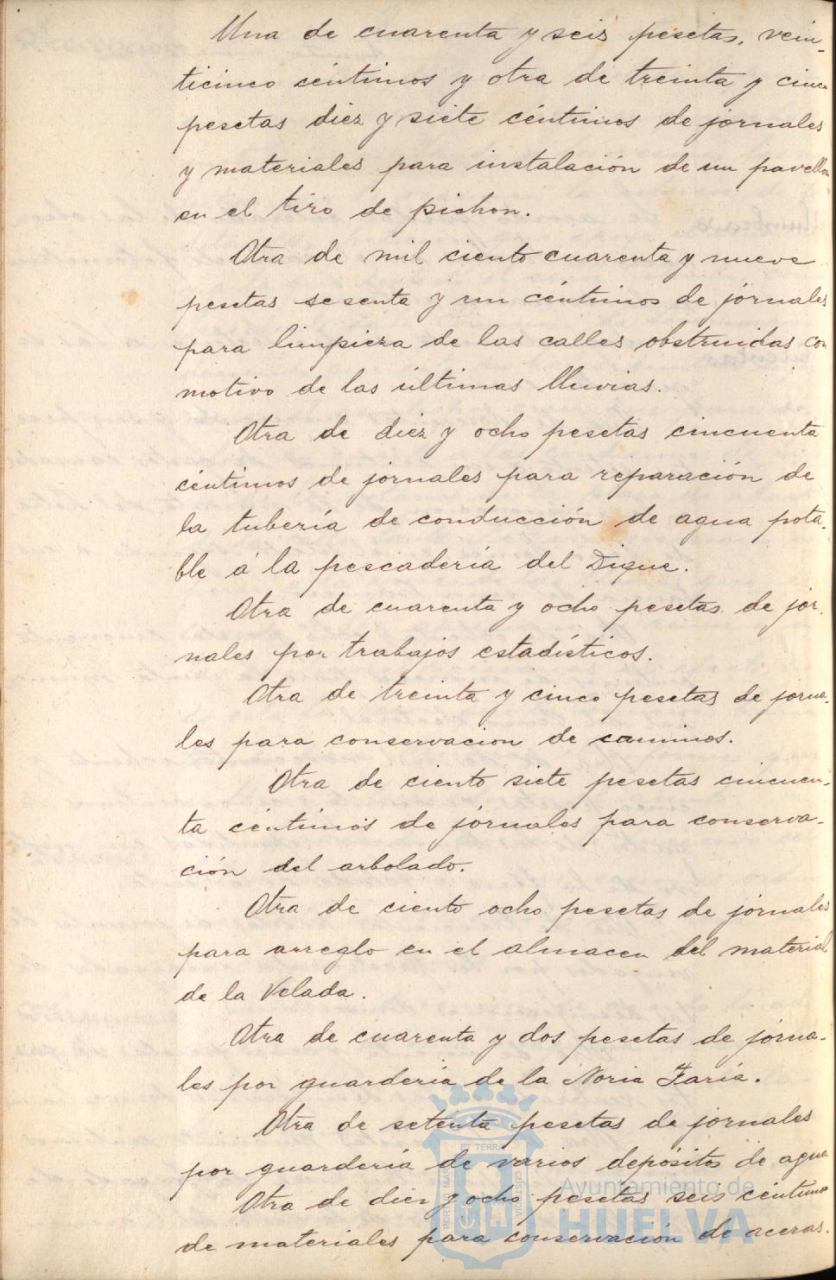 Una de cuarenta y seis pesetas, vein-
ticinco céntimos y otra de treinta y cinco
pesetas diez y siete céntimos de jornales
y materiales para instalación de un pavellon
en el tiro de pichon.
Otra de mil ciento cuarenta y nueve
pesetas sesenta y un céntimos de jornales
para limpieza de las calles obstruidas con
motivo de las últimas lluvias.
Otra de diez y ocho pesetas cincuenta
céntimos de jornales para reparación de
la tubería de conducción de agua pota-
ble á la pescadería del Dique.
Otra de cuarenta y ocho pesetas de jor-
nales por trabajos estadísticos.
Otra de treinta y cinco pesetas de jorna-
les para conservacion de caminos.
Otra de ciento siete pesetas cincuen-
ta céntimos de jornales para conserva-
ción del arbolado.
Otra de ciento ocho pesetas de jornales
para arreglo en el almacen del material
de la Velada.
Otra de cuarenta y dos pesetas de jorna-
les por guardería de la Noria Faria.
Otra de setenta pesetas de jornales
por guardería de varios depósitos de agua
Otra de diez y ocho pesetas seis céntimos
de materiales para conservación de aceras.
Ayuntamiento de
HUELVA